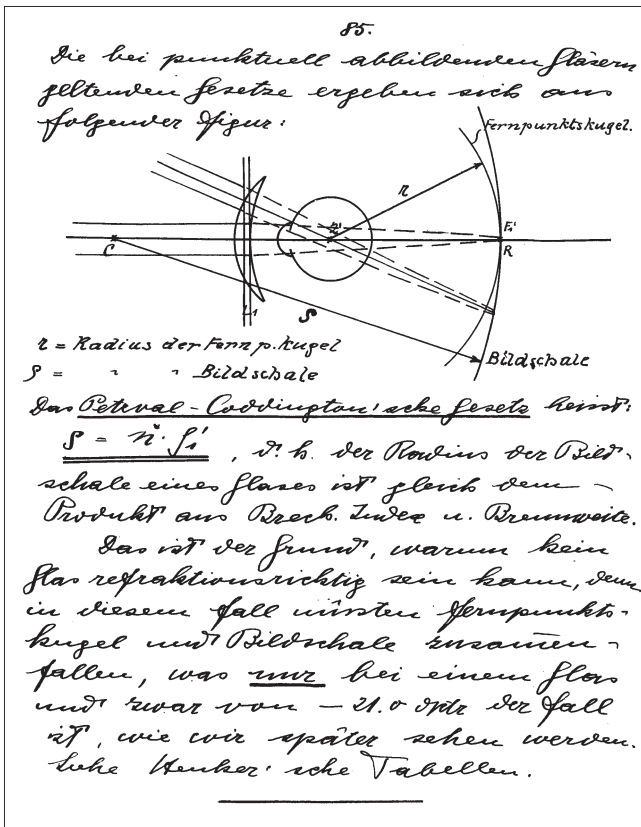 85.
Die bei punktuell abbildenden Gläsern
geltenden Gesetze ergeben sich aus
folgender Figur:
Fernpunktskugel.
r
Z'
F₁'
R
C
L₁
ρ
r = Radius der Fernp.kugel
ρ = " " Bildschale
Bildschale
Das Petzval-Coddington'sche Gesetz heisst:
ρ = n · f₁' , d. h. der Radius der Bild-
schale eines Glases ist gleich dem -
Produkt aus Brech. Index u. Brennweite.
Das ist der Grund, warum kein
Glas refraktionsrichtig sein kann, denn
in diesem Fall müssten Fernpunkts-
kugel und Bildschale zusam̄en-
fallen, was nur bei einem Glas
und zwar von - 21.0 dptr der Fall
ist, wie wir später sehen werden.
Siehe Henker'sche Tabellen.